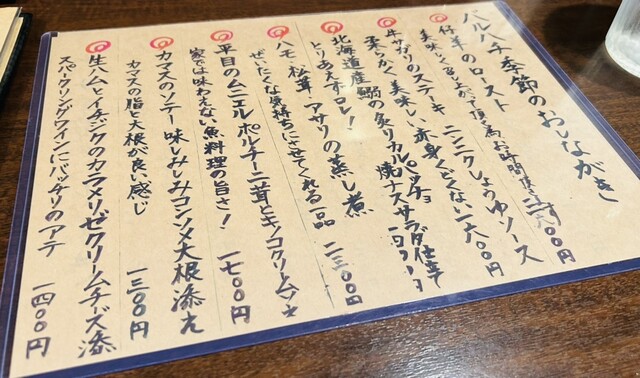 バルハチ季節のおしながき
仔羊のロースト
美味しく召し上がって頂く為お時間頂きます 二八〇〇円
牛サガリのステーキ ニンニクしょうゆソース
柔らかく美味しい赤身くどくない 一八〇〇円
北海道産鰯の炙りカルパッチョ 焼ナスサラダ仕立
とりあえずコレ!
ハモ、松茸、アサリの蒸し煮
ぜいたくな気持ちにさせてくれる一品 二三〇〇円
平目のムニエル ポルチーニ茸とキノコクリームソース
家では味わえない魚料理の旨さ! 一七〇〇円
カマスのソテー 味しみしみコンソメ大根添え
カマスの脂と大根が良い感じ 一三〇〇円
生ハムとイチジクのカラメリゼクリームチーズ添
スパークリングワインにバッチリのアテ 一四〇〇円